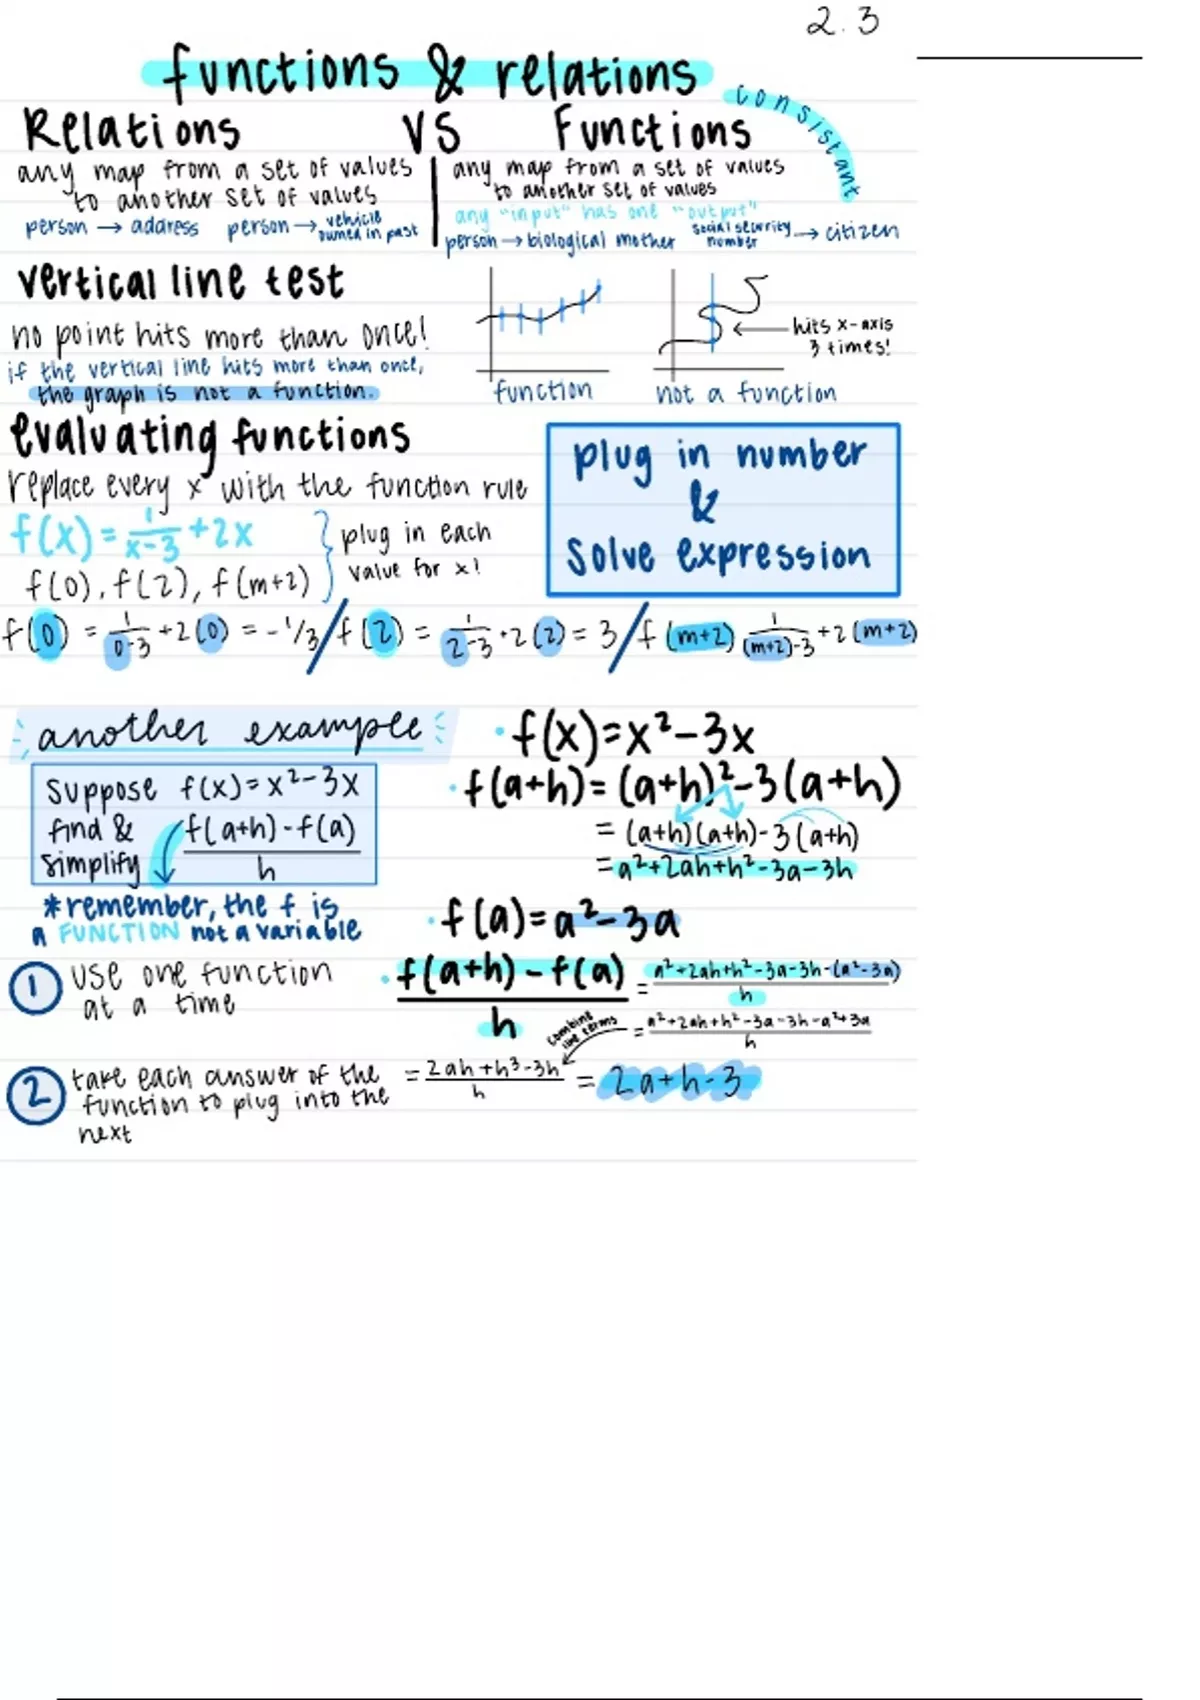 2.3
functions & relations
consistant
Relations VS Functions
any map from a set of values
to another set of values
person → address person → vehicle owned in past
any map from a set of values
to another set of values
any "input" has one "output"
person → biological mother social security number → citizen
vertical line test
no point hits more than once!
if the vertical line hits more than once,
the graph is not a function.
function
hits x-axis
3 times!
not a function
evaluating functions
replace every x with the function rule
f(x) = 1/(x-3) + 2x
f(0), f(2), f(m+2)
plug in each
value for x!
plug in number
&
solve expression
f(0) = 1/(0-3) + 2(0) = -1/3 / f(2) = 1/(2-3) + 2(2) = 3 / f(m+2) 1/((m+2)-3) + 2(m+2)
another example
suppose f(x) = x²-3x
find & simplify (f(a+h) - f(a))/h
*remember, the f is
a FUNCTION not a variable
1 use one function
at a time
2 take each answer of the
function to plug into the
next
· f(x) = x²-3x
· f(a+h) = (a+h)²-3(a+h)
= (a+h)(a+h)-3(a+h)
= a²+2ah+h²-3a-3h
· f(a) = a²-3a
· (f(a+h) - f(a))/h = (a²+2ah+h²-3a-3h-(a²-3a))/h
combine like terms = (a²+2ah+h²-3a-3h-a²+3a)/h
= (2ah+h³-3h)/h = 2a+h-3